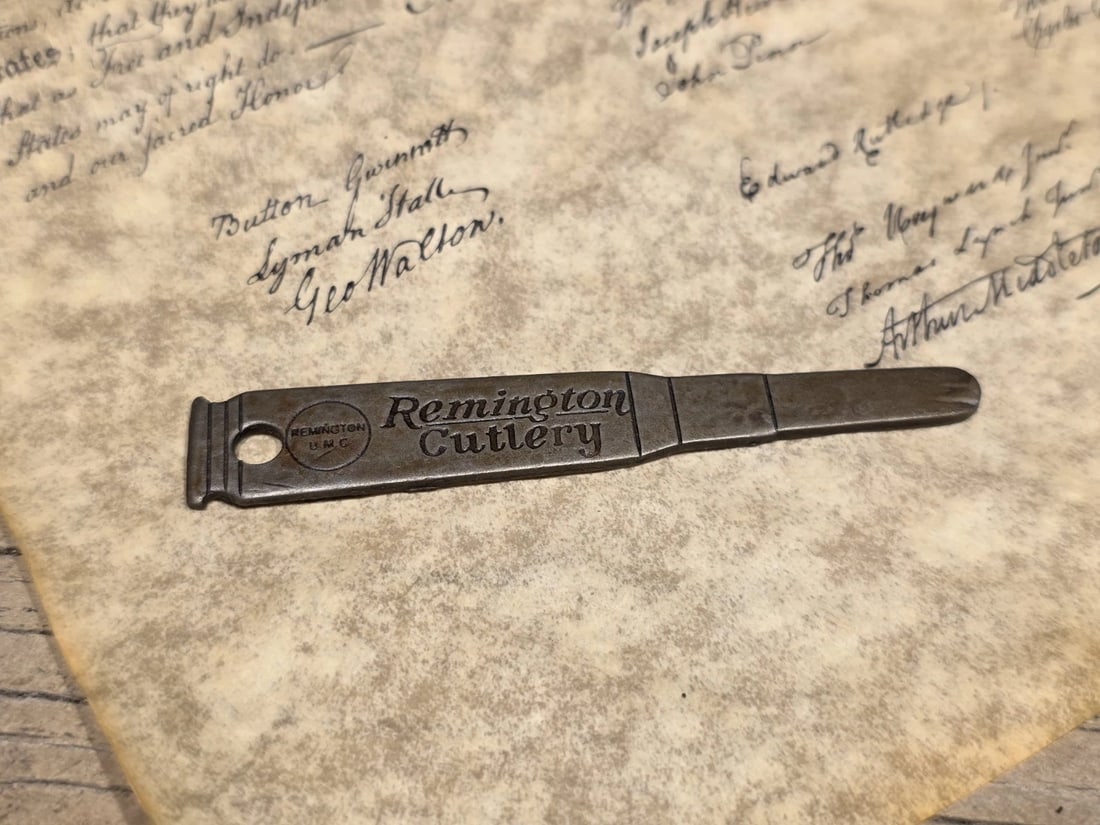 that they
ates;
Free and Indepen
States may of right do.
and our sacred Honor
Button Gwinnett
Lyman Hall
Geo Walton.
Joseph Hewes
John Penn
Edward Rutledge
Thos Heyward Junr
Thomas Lynch Junr
Arthur Middleton
REMINGTON
U.M.C
Remington
Cutlery